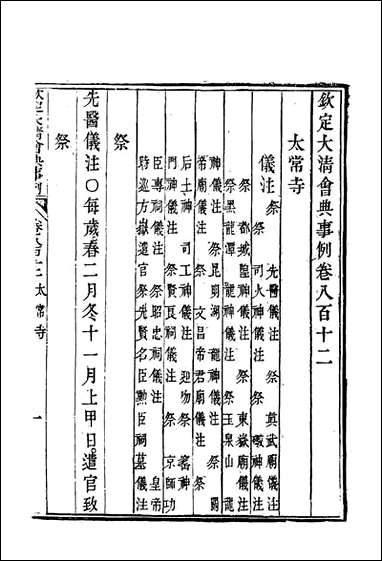 欽定大清會典事例卷八百十二
太常寺
儀注 祭 先醫儀注 祭 真武廟儀注
祭 司火神儀注 祭 礮神儀注
祭 都城隍神儀注 祭 東嶽廟儀注
祭黑龍潭 龍神儀注 祭玉泉山 龍
神儀注 祭昆明湖 龍神儀注 祭 關
帝廟儀注 祭 文昌帝君廟儀注 祭
后土神 司工神儀注 迎吻 祭 窰神
門神儀注 祭賢良祠儀注 祭 京師功
臣專祠儀注 祭昭忠祠儀注 皇帝
時巡方嶽遣官祭先賢名臣勳臣祠墓儀注
祭
先醫儀注○每歲春二月冬十一月上甲日遣官致
祭
太常寺
一